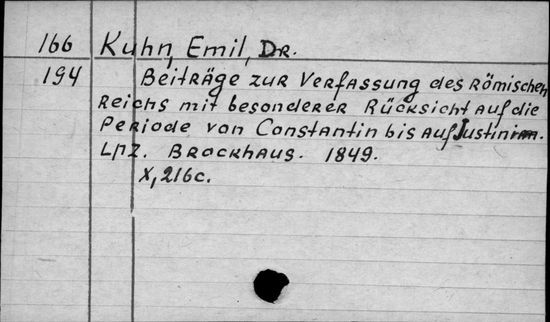 166 Kuhn, Emil, Dr.
194 Beiträge zur Verfassung des Römischen
Reichs mit besonderer Rücksicht auf die
Periode von Constantin bis auf Justinian.
Lpz. Brockhaus. 1849.
X, 216c.